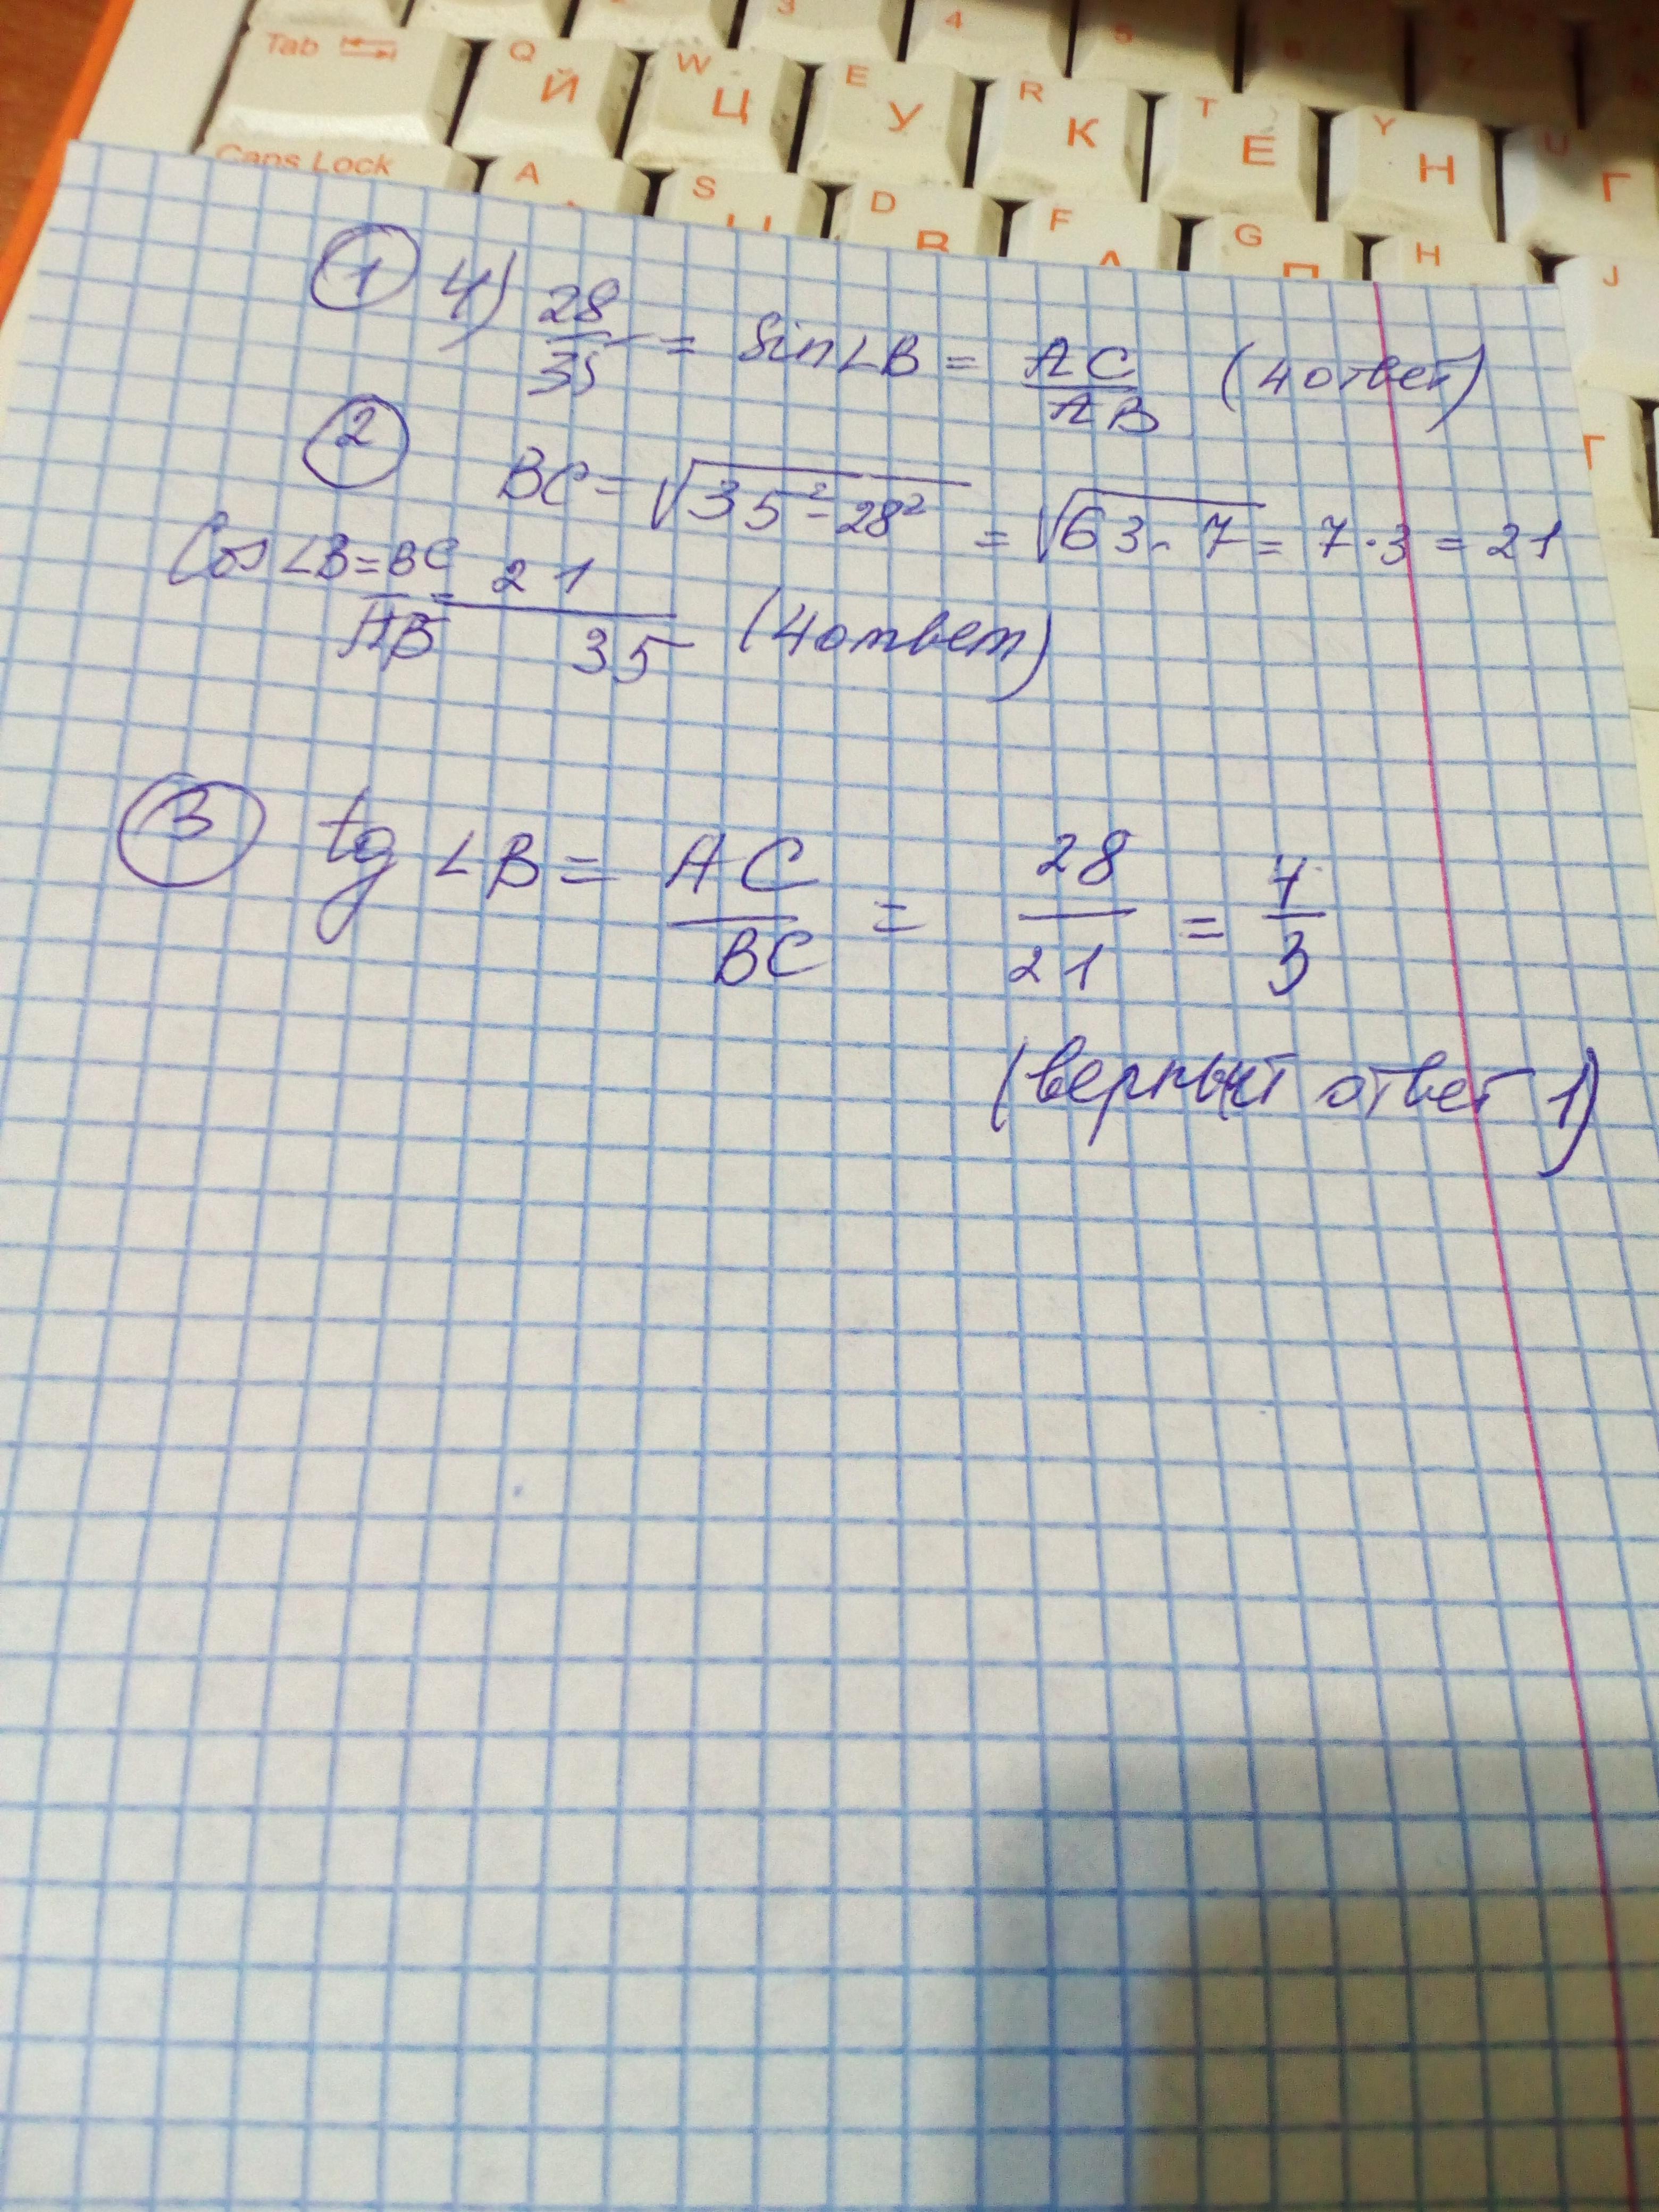 3 4 5
Tab Q Й W Ц E У R К T Е Y Н U Г
Caps Lock A S D В F А G П H J
① 4) 28/35 = Sin∠B = AC/AB (4 ответ)
② BC = √(35² - 28²) = √(63 · 7) = 7 · 3 = 21
Cos∠B = BC/AB = 21/35 (4 ответ)
③ tg∠B = AC/BC = 28/21 = 4/3
(верный ответ 1)